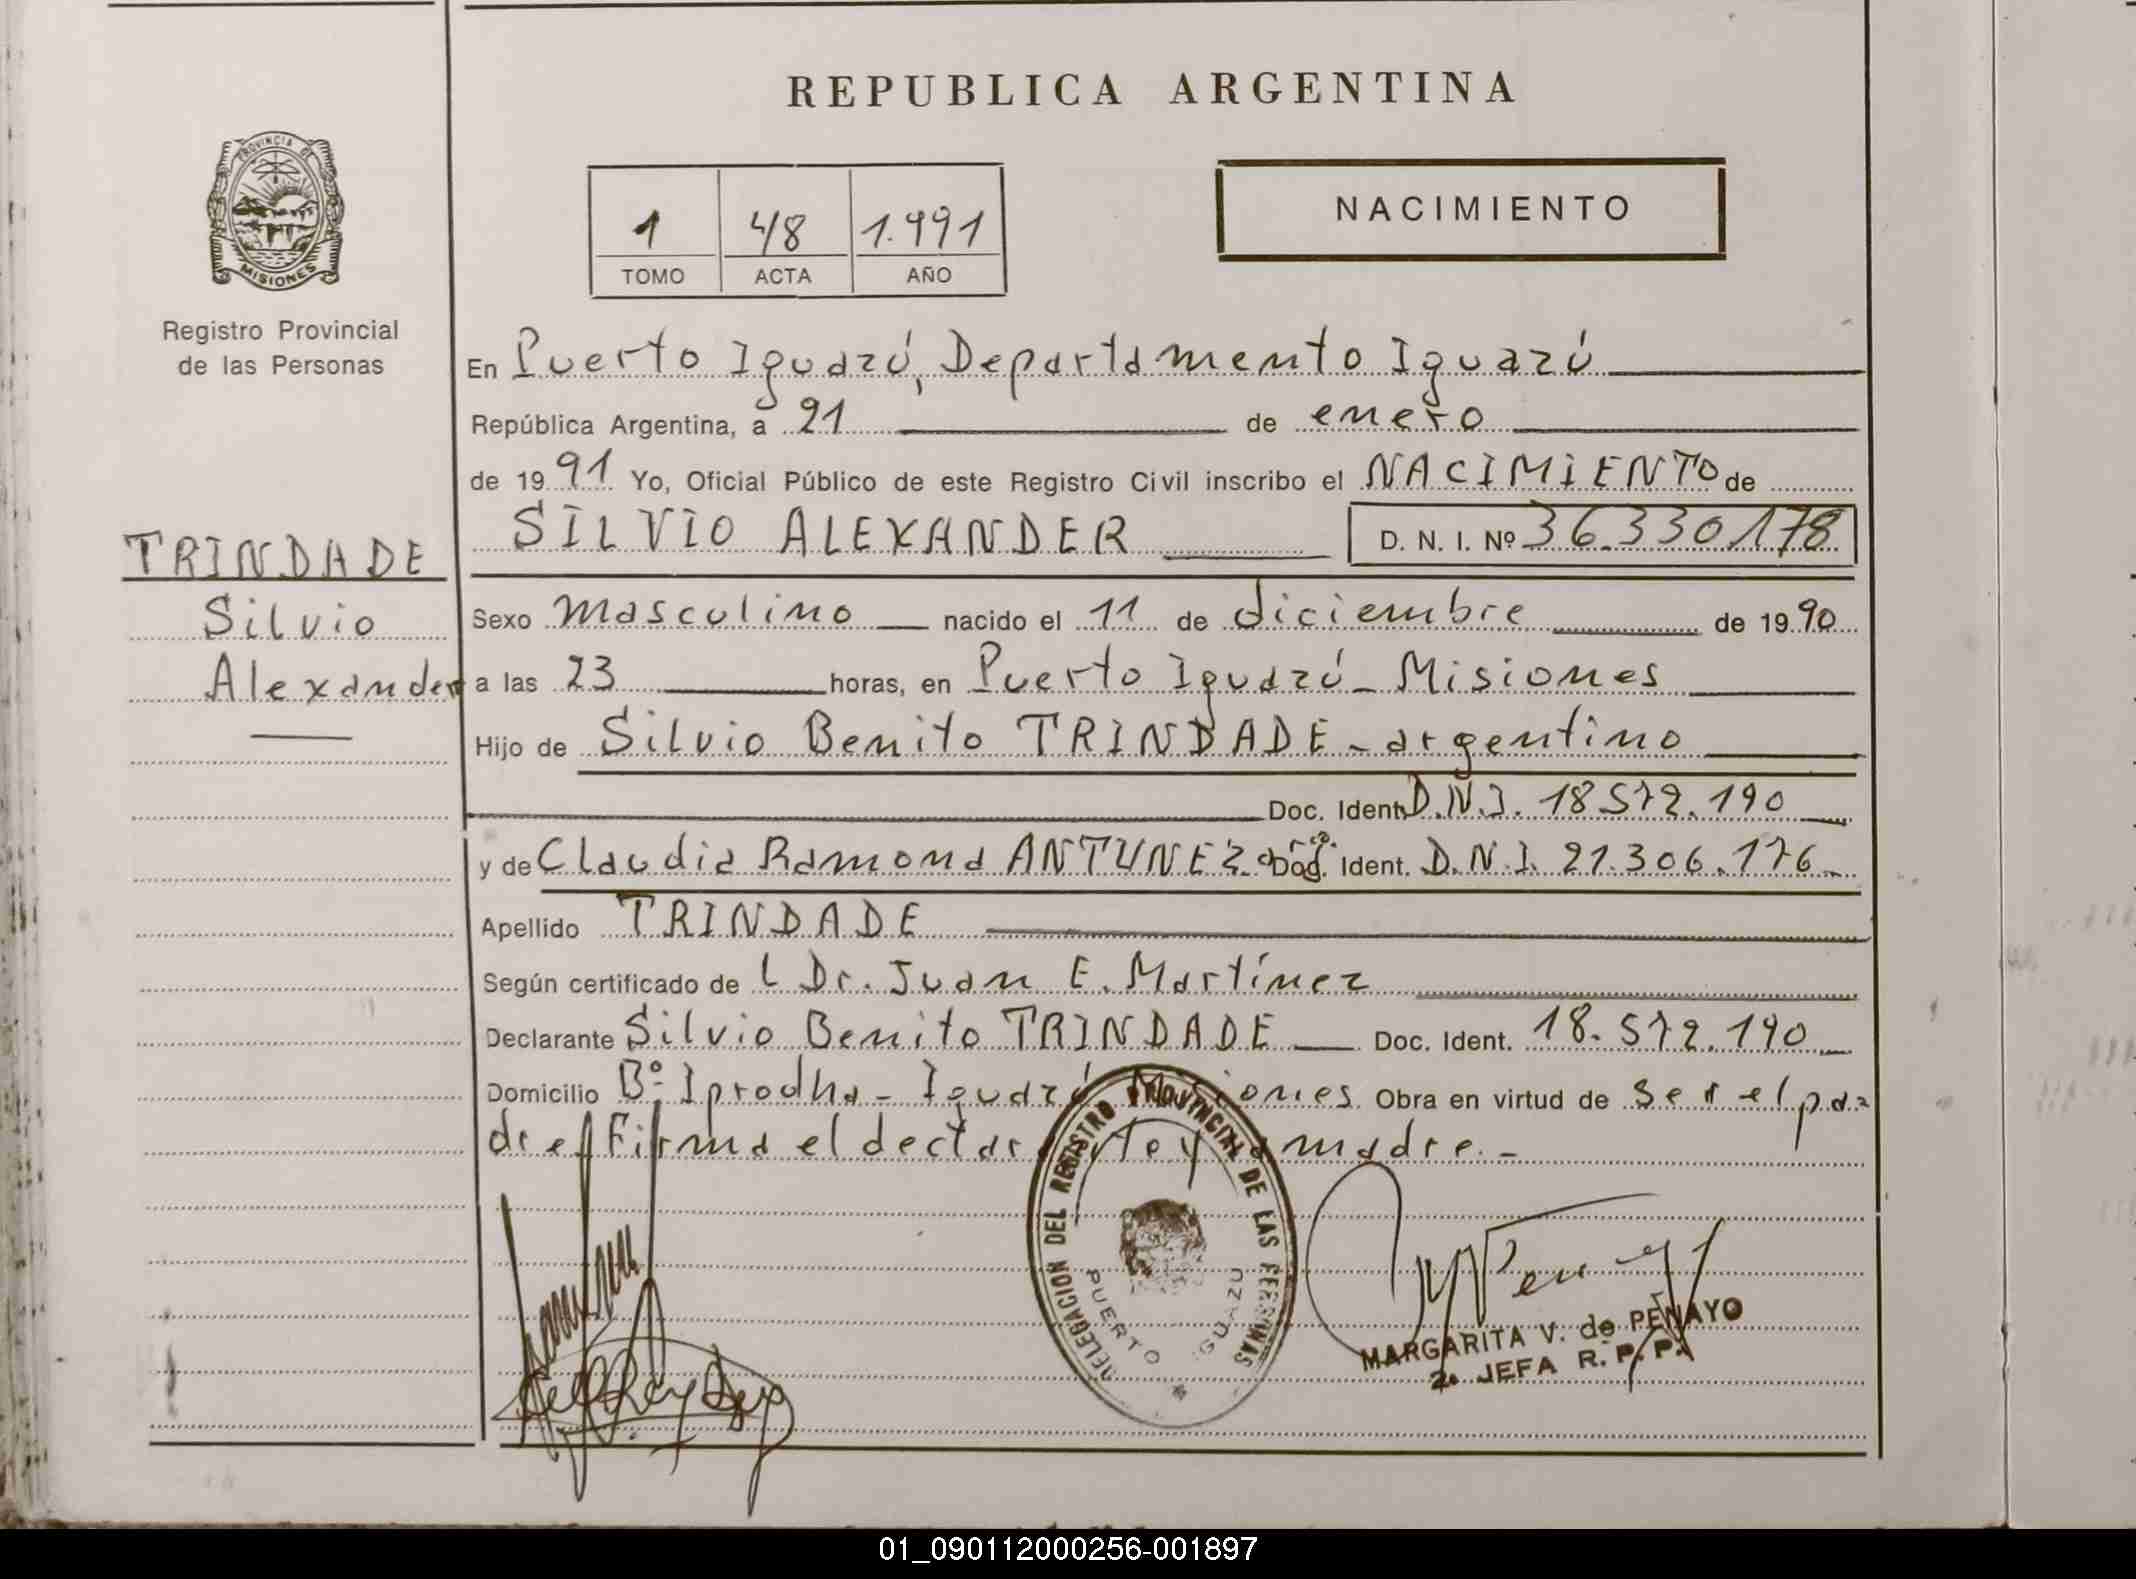 REPUBLICA ARGENTINA
PROVINCIA DE
MISIONES
Registro Provincial
de las Personas
1 48 1.991
TOMO ACTA AÑO
NACIMIENTO
En Puerto Iguazú, Departamento Iguazú
República Argentina, a 21 de enero
de 19 91 Yo, Oficial Público de este Registro Civil inscribo el NACIMIENTO de
TRINDADE
Silvio
Alexander
SILVIO ALEXANDER D. N. I. Nº 36.330178
Sexo masculino nacido el 11 de diciembre de 19 90
a las 23 horas, en Puerto Iguazú - Misiones
Hijo de Silvio Benito TRINDADE - argentino
Doc. Ident. D.N.I. 18.572.190
y de Claudia Ramona ANTUNEZ Doc. Ident. D.N.I. 21.306.176
Apellido TRINDADE
Según certificado de l Dr. Juan E. Martínez
Declarante Silvio Benito TRINDADE Doc. Ident. 18.572.190
Domicilio Bº Iprodha - Iguazú Misiones Obra en virtud de ser el pa=
dre/ Firma el declarante y la madre.-
DELEGACION DEL REGISTRO PROVINCIAL DE LAS PERSONAS
PUERTO IGUAZU
MARGARITA V. de PENAYO
2a. JEFA R. P. P.
01_090112000256-001897